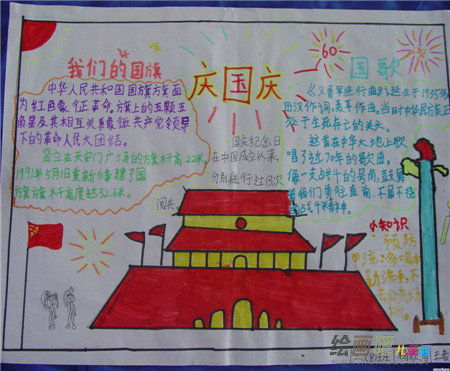 我们的国旗
中华人民共和国国旗旗面
为红色象征革命。旗上的五颗五
角星及其相互关系象征共产党领导
下的革命人民大团结。
竖立在天安门广场的旗杆高22米,
1991年5月1日重新修建了国
旗旗杆高度达32.6米。
国庆
庆
国庆纪念日
在中国成立以来,
分别进行过几次
阅兵。
60
国歌
《义勇军进行曲》诞生于1935年
田汉作词、聂耳作曲,当时中华民族正
处于生死存亡的关头。
这首在中华大地上歌
唱了近70年的歌曲,
像一支战斗的号角,鼓舞
着我们勇往直前、不屈不挠
的战斗精神。
小知识
预防
甲流多喝
勤洗手,不
绘画
王者